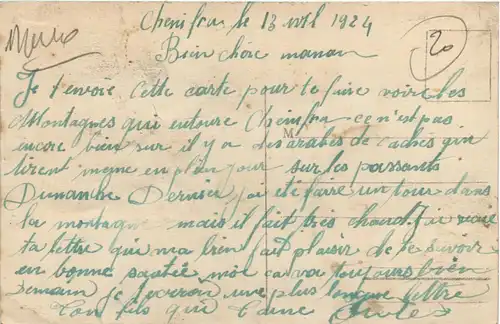 Khenifra le 13 avril 1924
20
Bien chère maman
Je t'envoie cette carte pour te faire voire les
Montagnes qui entoure Kheinfra ce n'est pas
encore bien sur il y a des arabes de cachés qui
tirent meme en plein jour sur les passants
Dimanche Dernier j'ai été faire un tour dans
la montagne mais il fait tres chaud. J'ai
ta lettre qui m'a bien fait plaisir de te savoir
en bonne santée moi ca va toujours bien
demain je t'
une plus longue lettre
Ton fils qui t'aime
M